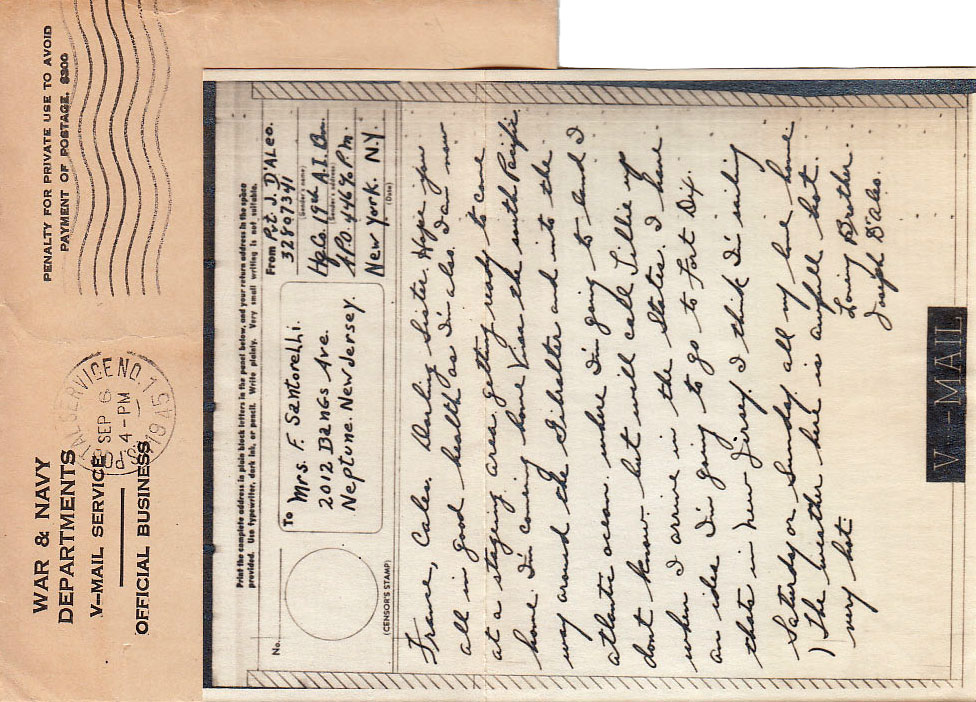 WAR & NAVY
DEPARTMENTS
V-MAIL SERVICE
OFFICIAL BUSINESS
PENALTY FOR PRIVATE USE TO AVOID
PAYMENT OF POSTAGE, $300
SERVICE NO. 1
SEP 6
4-PM
1945
Print the complete address in plain block letters in the panel below, and your return address in the space
provided. Use typewriter, dark ink, or pencil. Write plainly. Very small writing is not suitable.
No.
(CENSOR'S STAMP)
To
Mrs. F. Santorelli.
2012 Bangs Ave.
Neptune. New Jersey.
From
Pvt. J. D'Aleo.
32807341
(Sender's name)
Hq. Co. 19th A.I. Bn.
(Sender's address)
A.P.O. 446 % P.M.
New York. N.Y
(Date)
France, Calas. Darling Sister. Hope you
all in good health as I'm also. I am now
at a stageing area getting ready to come
home. I'm coming home Viss the south Pacific
way around the Gibralter and into the
atlantic ocean. where I'm going to land I
dont know. but will call Tillie up
when I arrive in the States. I have
an idea I'm going to go to Fort Dix.
thats in new Jersey. I think I'm sailing
Saturday or Sunday all my love home
) The weather here is awfull hot.
very hot
Loving Brother.
Joseph D'aleo.
V---MAIL